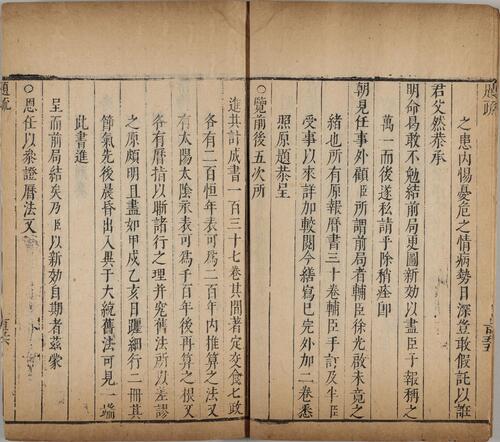 題疏
之患內惕憂危之情病勢日深豈敢假託以誑
君父然恭承
明命曷敢不勉結前局更圖新効以盡臣子報稱之
萬一而後遂私請乎除稍痊即
朝見任事外顧臣所謂前局者輔臣徐光啟未竟之
緒也所有原報曆書三十卷輔臣手訂及半臣
受事以來詳加較閱今繕寫已完外加二卷悉
照原題恭呈
○覽前後五次所
進共計成書一百三十七卷其間著定交食七政
各有二百恒年表可為二百年內推算之法又
有太陽太陰永表可為千百年後再算之根又
各有曆指以晰諸行之理并究舊法所以差謬
之原頗明且盡如甲戌乙亥日躔細行二冊其
節氣先後晨昏出入異于大統舊法可見一端
此書進
呈而前局結矣乃臣以新効自期者蓋蒙
○恩任以叅證曆法又
題疏